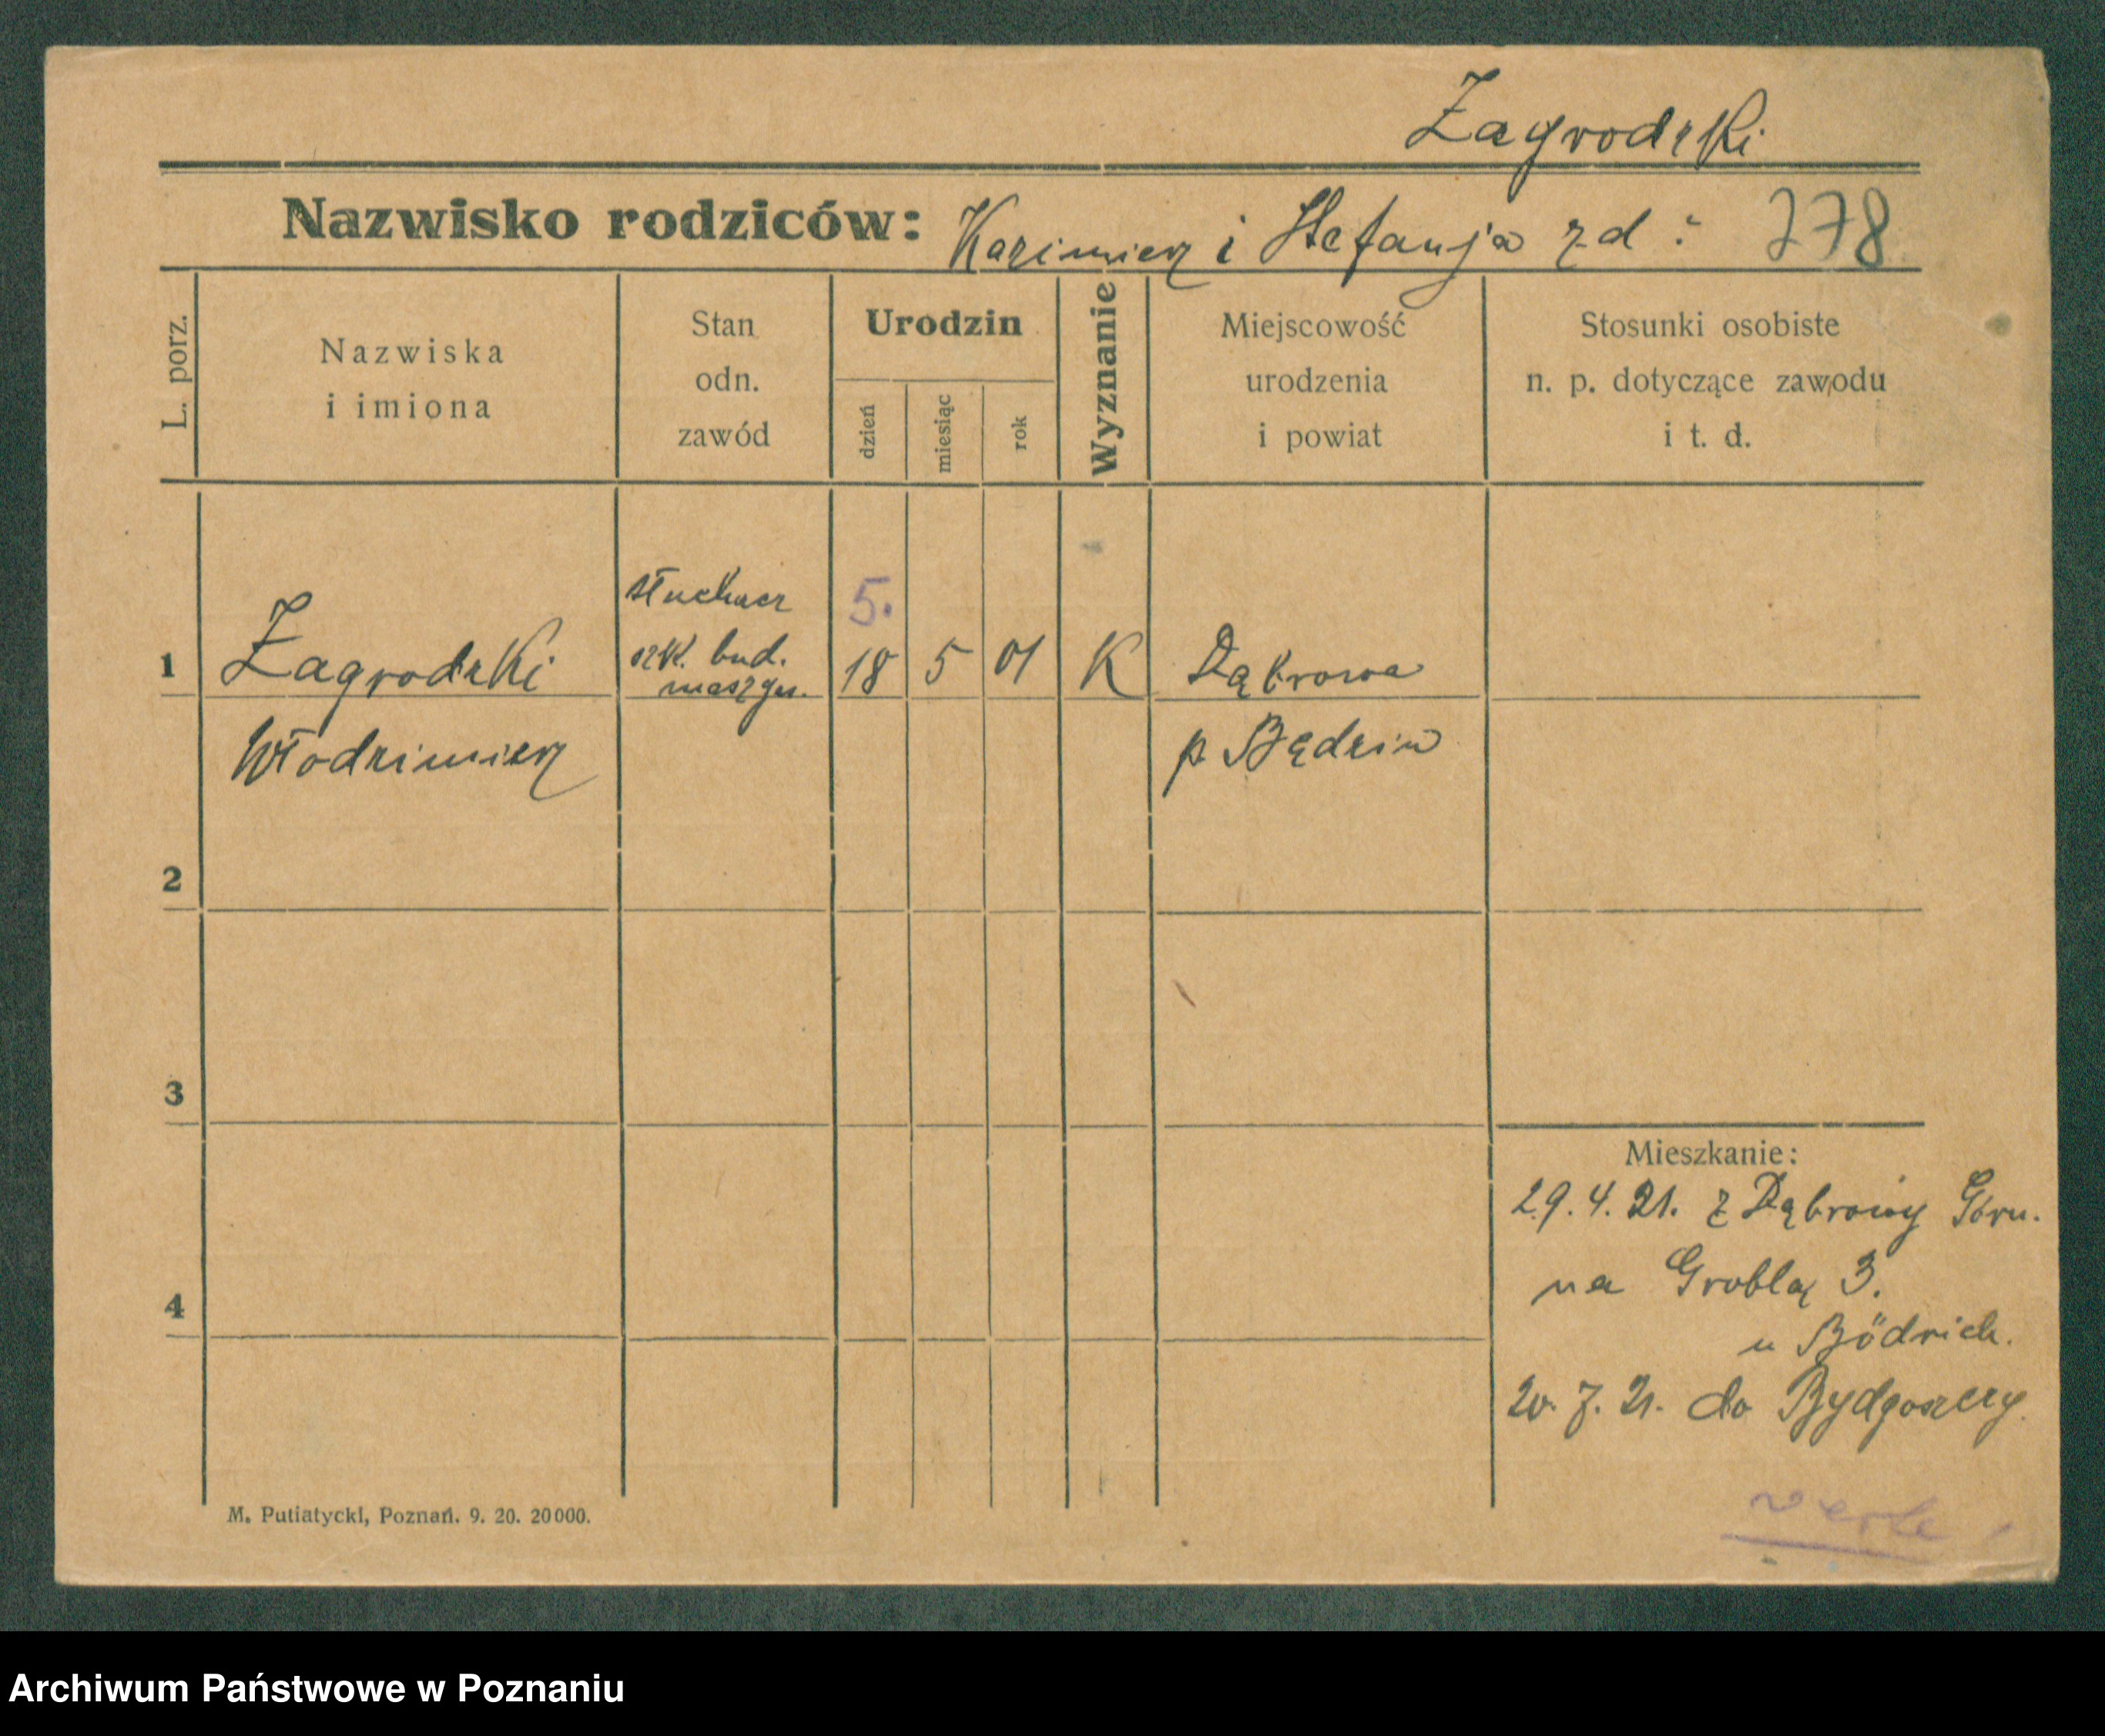 Zagrodzki
Nazwisko rodziców: Kazimierz i Stefanja z d : 278
L. porz.
Nazwiska
i imiona
Stan
odn.
zawód
Urodzin
dzień
miesiąc
rok
Wyznanie
Miejscowość
urodzenia
i powiat
Stosunki osobiste
n. p. dotyczące zawodu
i t. d.
słuchacz
5.
1 Zagrodzki szk. bud. 18 5 01 K Dąbrowa
maszyn.
Włodzimierz p. Będzin
2
3
Mieszkanie:
29. 4. 21. z Dąbrowy Górn.
na Groblą 3.
4
u Bödrich.
20. 7. 21. do Bydgoszczy.
M. Putiatycki, Poznań. 9. 20. 20000.
Archiwum Państwowe w Poznaniu